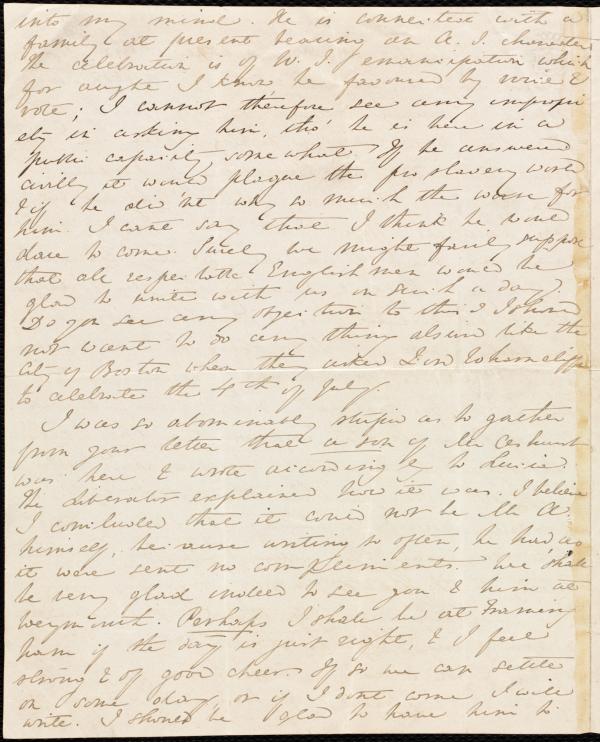 into my mind. He is connected with a
family at present bearing an A. S. character
the celebration is of W. I. emancipation which
for aught I know he favoured by voice &
vote; I cannot therefore see any impropri
ety in asking him, tho' he is here in a
public capacity, somewhat. If he answered
civilly it would plague the pro slavery world
& if he did'nt why so much the worse for
him. I cant say that I think he would
dare to come. Surely we might fairly suppose
that all respectable Englishmen would be
glad to unite with us on such a day.
Do you see any objection to this? I should
not want to do any thing absurd like the
City of Boston when they asked Lord Wharncliffe
to celebrate the 4th of July.
I was so abominably stupid as to gather
from your letter that a son of Mr Ashurst
was here & wrote accordingly to Louisa.
The Liberator explained how it was. I believe
I concluded that it could not be Mr A.
himself, because writing so often, he had, as
it were sent no compliments. We shall
be very glad indeed to see you & him at
Weymouth. Perhaps I shall be at Framing
ham if the day is just right, & I feel
strong & of good cheer. If so we can settle
on some day or if I dont come I will
write. I should be glad to have him to